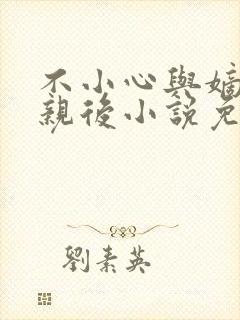 不小心與嫡
親後小說免
劉素英